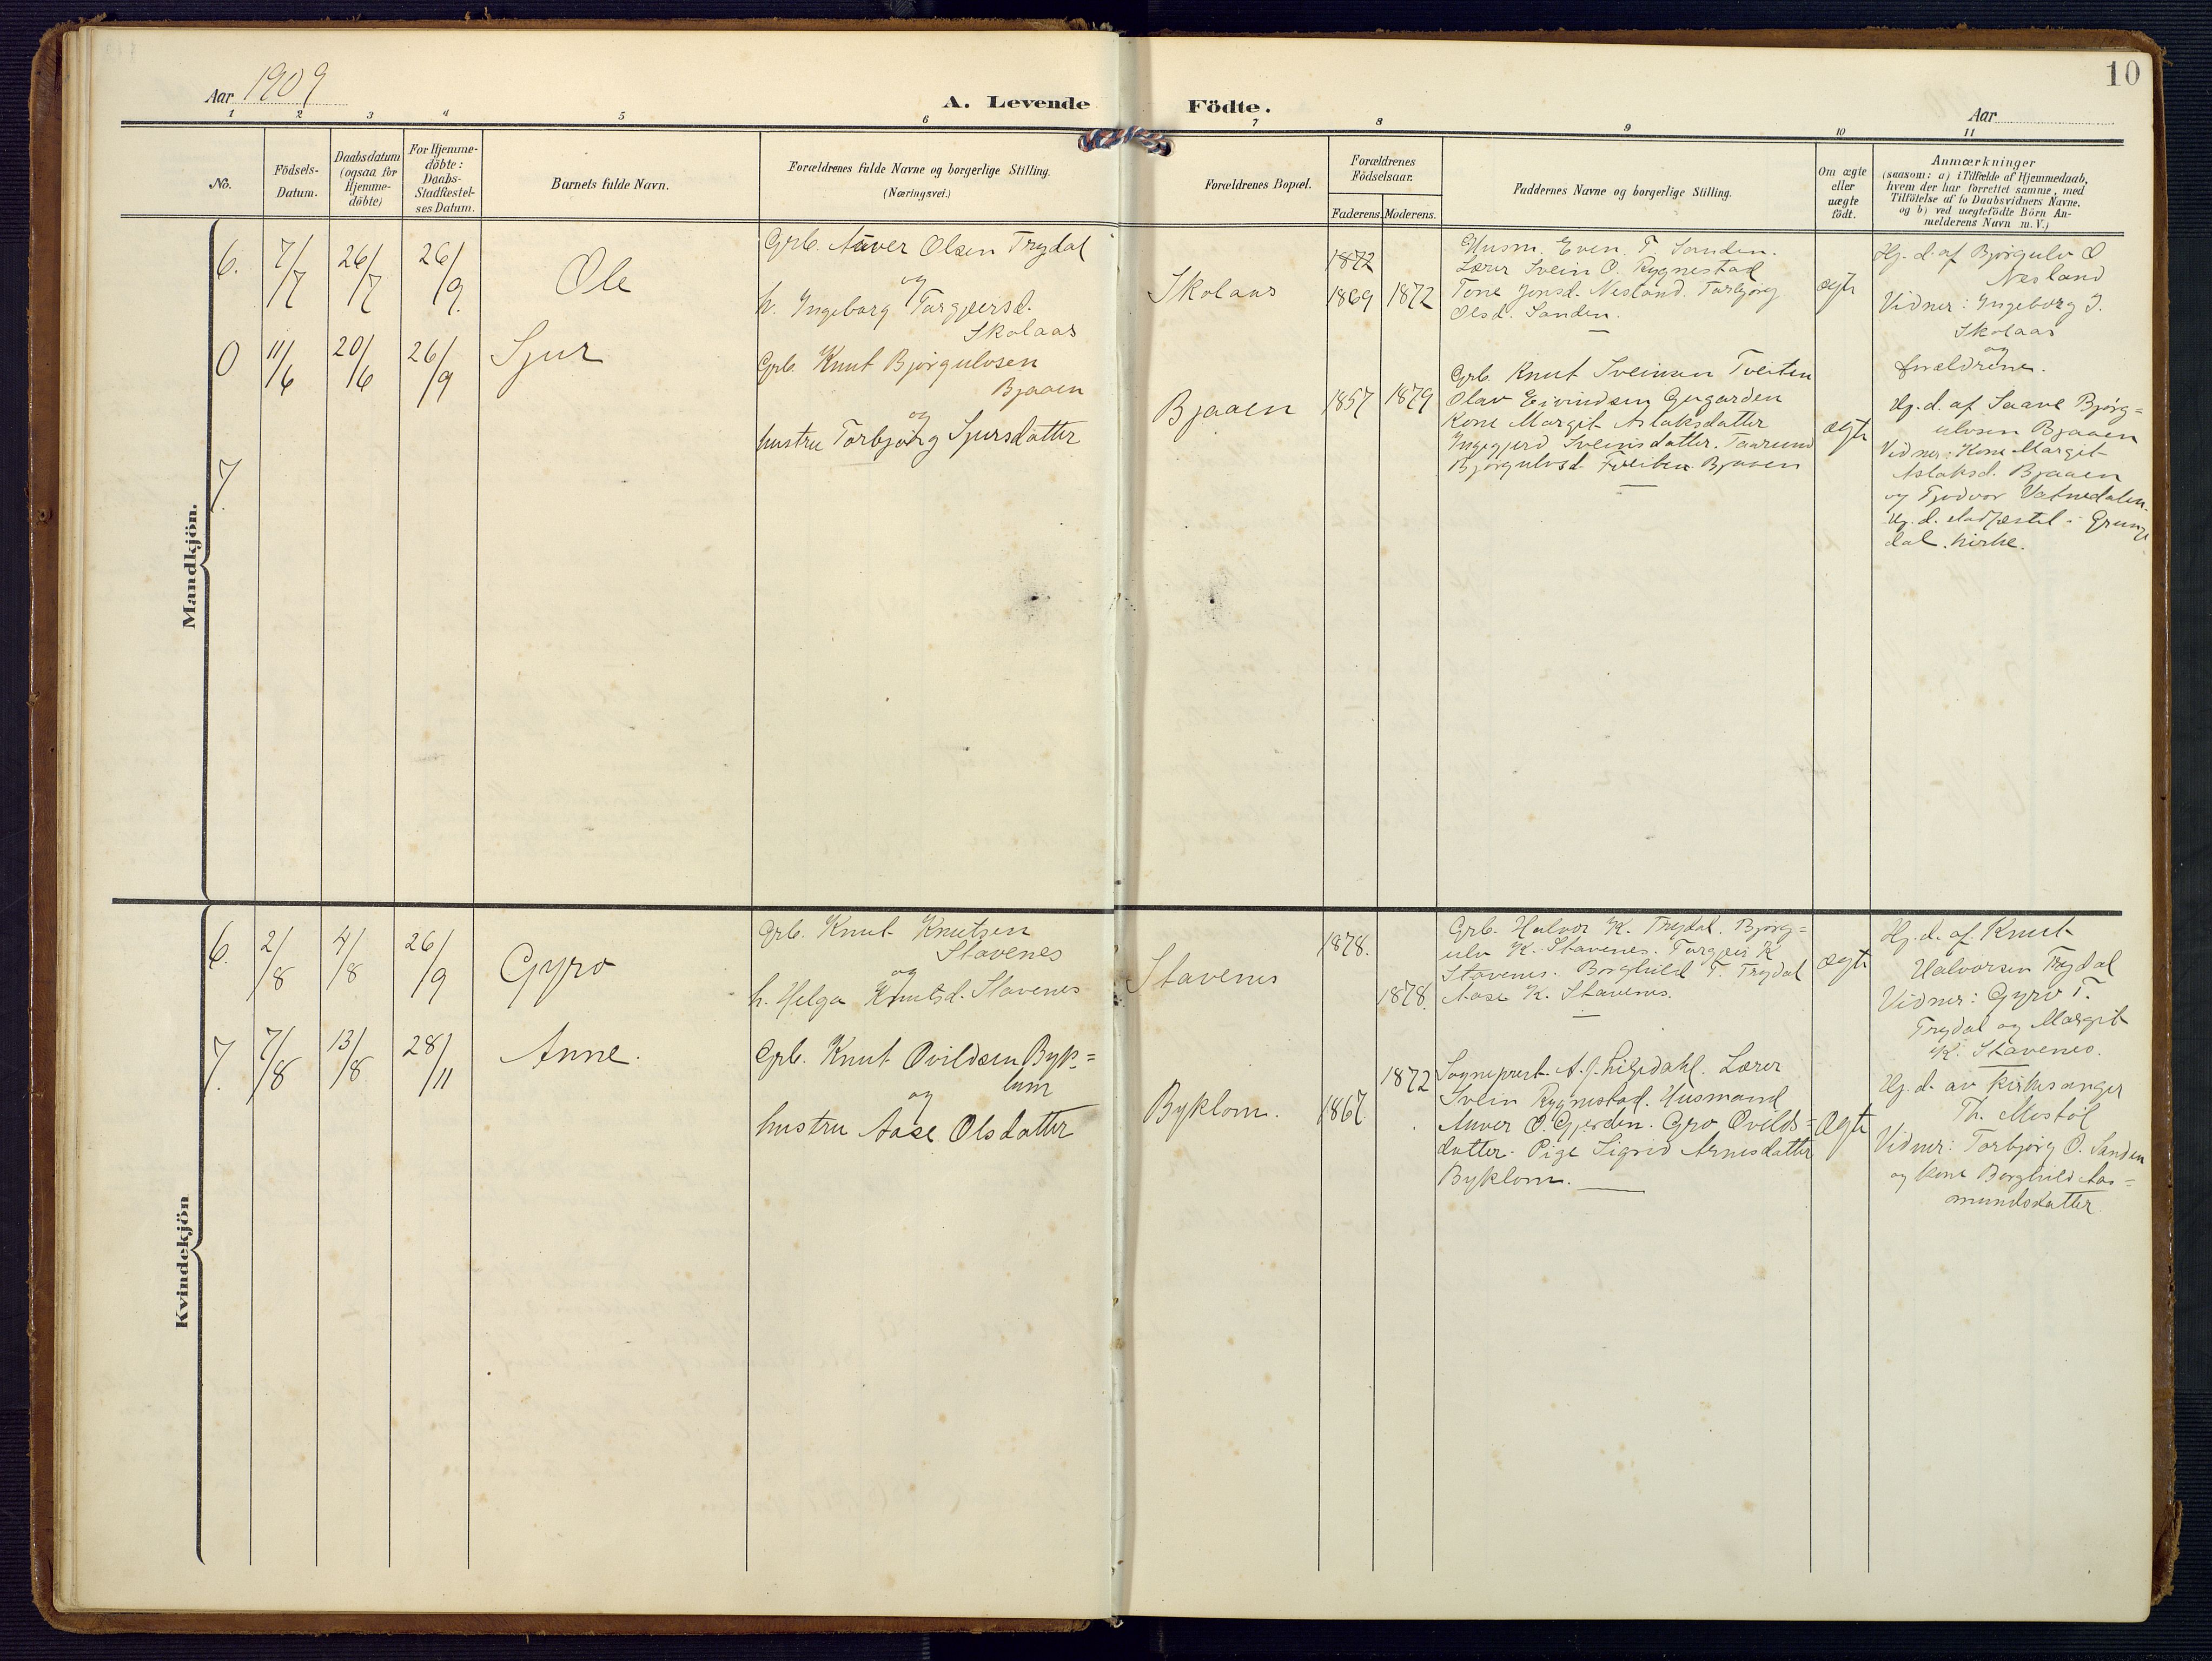 10
Aar 1909
A. Levende Födte.
Aar
1 2 3 4 5 6 7 8 9 10 11
No.
Födsels-
Datum.
Daabsdatum
(ogsaa for
Hjemme-
döbte)
For Hjemme-
döbte:
Daabs-
Stadfæstel-
ses Datum.
Barnets fulde Navn.
Forældrenes fulde Navne og borgerlige Stilling.
(Næringsvei.)
Forældrenes Bopæl.
Forældrenes
Födselsaar.
Faderens. Moderens.
Faddernes Navne og borgerlige Stilling.
Om ægte
eller
uægte
födt.
Anmærkninger
(saasom: a) i Tilfælde af Hjemmedaab,
hvem der har forrettet samme, med
Tilföielse af to Daabsvidners Navne,
og b) ved uægtefödte Börn An-
melderens Navn m.V.)
Mandkjön.
6. 7/7 26/7 26/9. Ole
Grb. Auver Olsen Trydal
og
h. Ingeborg Torgjersd.
Skolaas
Skolaas
1872
1869 1872
Husm. Even T. Sanden.
Lærer Svein O. Rygnestad
Tone Jonsd. Nesland. Torbjørg
Olsd. Sanden.
ægte
Hj. d. af Bjørgulv O
Nesland
Vidner: Ingeborg T.
Skolaas
og
forældrene.
0 11/6 20/6 26/9 Sjur
Grb. Knut Bjørgulvsen
Bjaaen
og
hustru Torbjørg Sjursdatter
Bjaaen
1857 1879
Grb. Knut Sveinsen Tveiten
Olav Eivindsen Gugarden
Kone Margit Aslaksdatter
Ingegjerd Sveinsdatter. Taarunn
Bjørgulvsd. Tveiten. Bjaaen
ægte
Hj. d. af Saave Bjørg=
ulvsen Bjaaen
Vidner: Kone Margit
Aslaksd. Bjaaen
og Tjodvor Vatnedalen.
Hj. d. stadfæstet i Grunge
dal. kirke.
7.
Kvindekjön
6. 2/8 4/8 26/9 Gyro
Grb. Knut Knutsen
Stavenes
og
h. Helga Knutsd. Stavenes
Stavenes
1878.
1878.
Grb. Halvor K. Trydal. Bjørg=
ulv K. Stavenes. Torgjeir K
Stavenes. Borghild T. Trydal
Aase K. Stavenes.
ægte
Hj. d. af Knut
Halvorsen Trydal
Vidner: Gyro T.
Trydal og Margit
K. Stavenes.
7. 7/8 13/8 28/11 Anne.
Grb. Knut Ovildsen Byk=
lum
og
hustru Aase Olsdatter
Byklom.
1867. 1872
Sogneprest A. J. Liljedahl. Lærer
Svein Rygnestad. Husmand
Auver O. Gjerden. Gro Ovilds=
datter. Pige Sigrid Arnesdatter
Byklom.
Ægte
Hj. d. av kirkesanger
Th. Mostøl
Vidner: Torbjørg O. Sanden
og kone Borghild Aas=
mundsdatter.